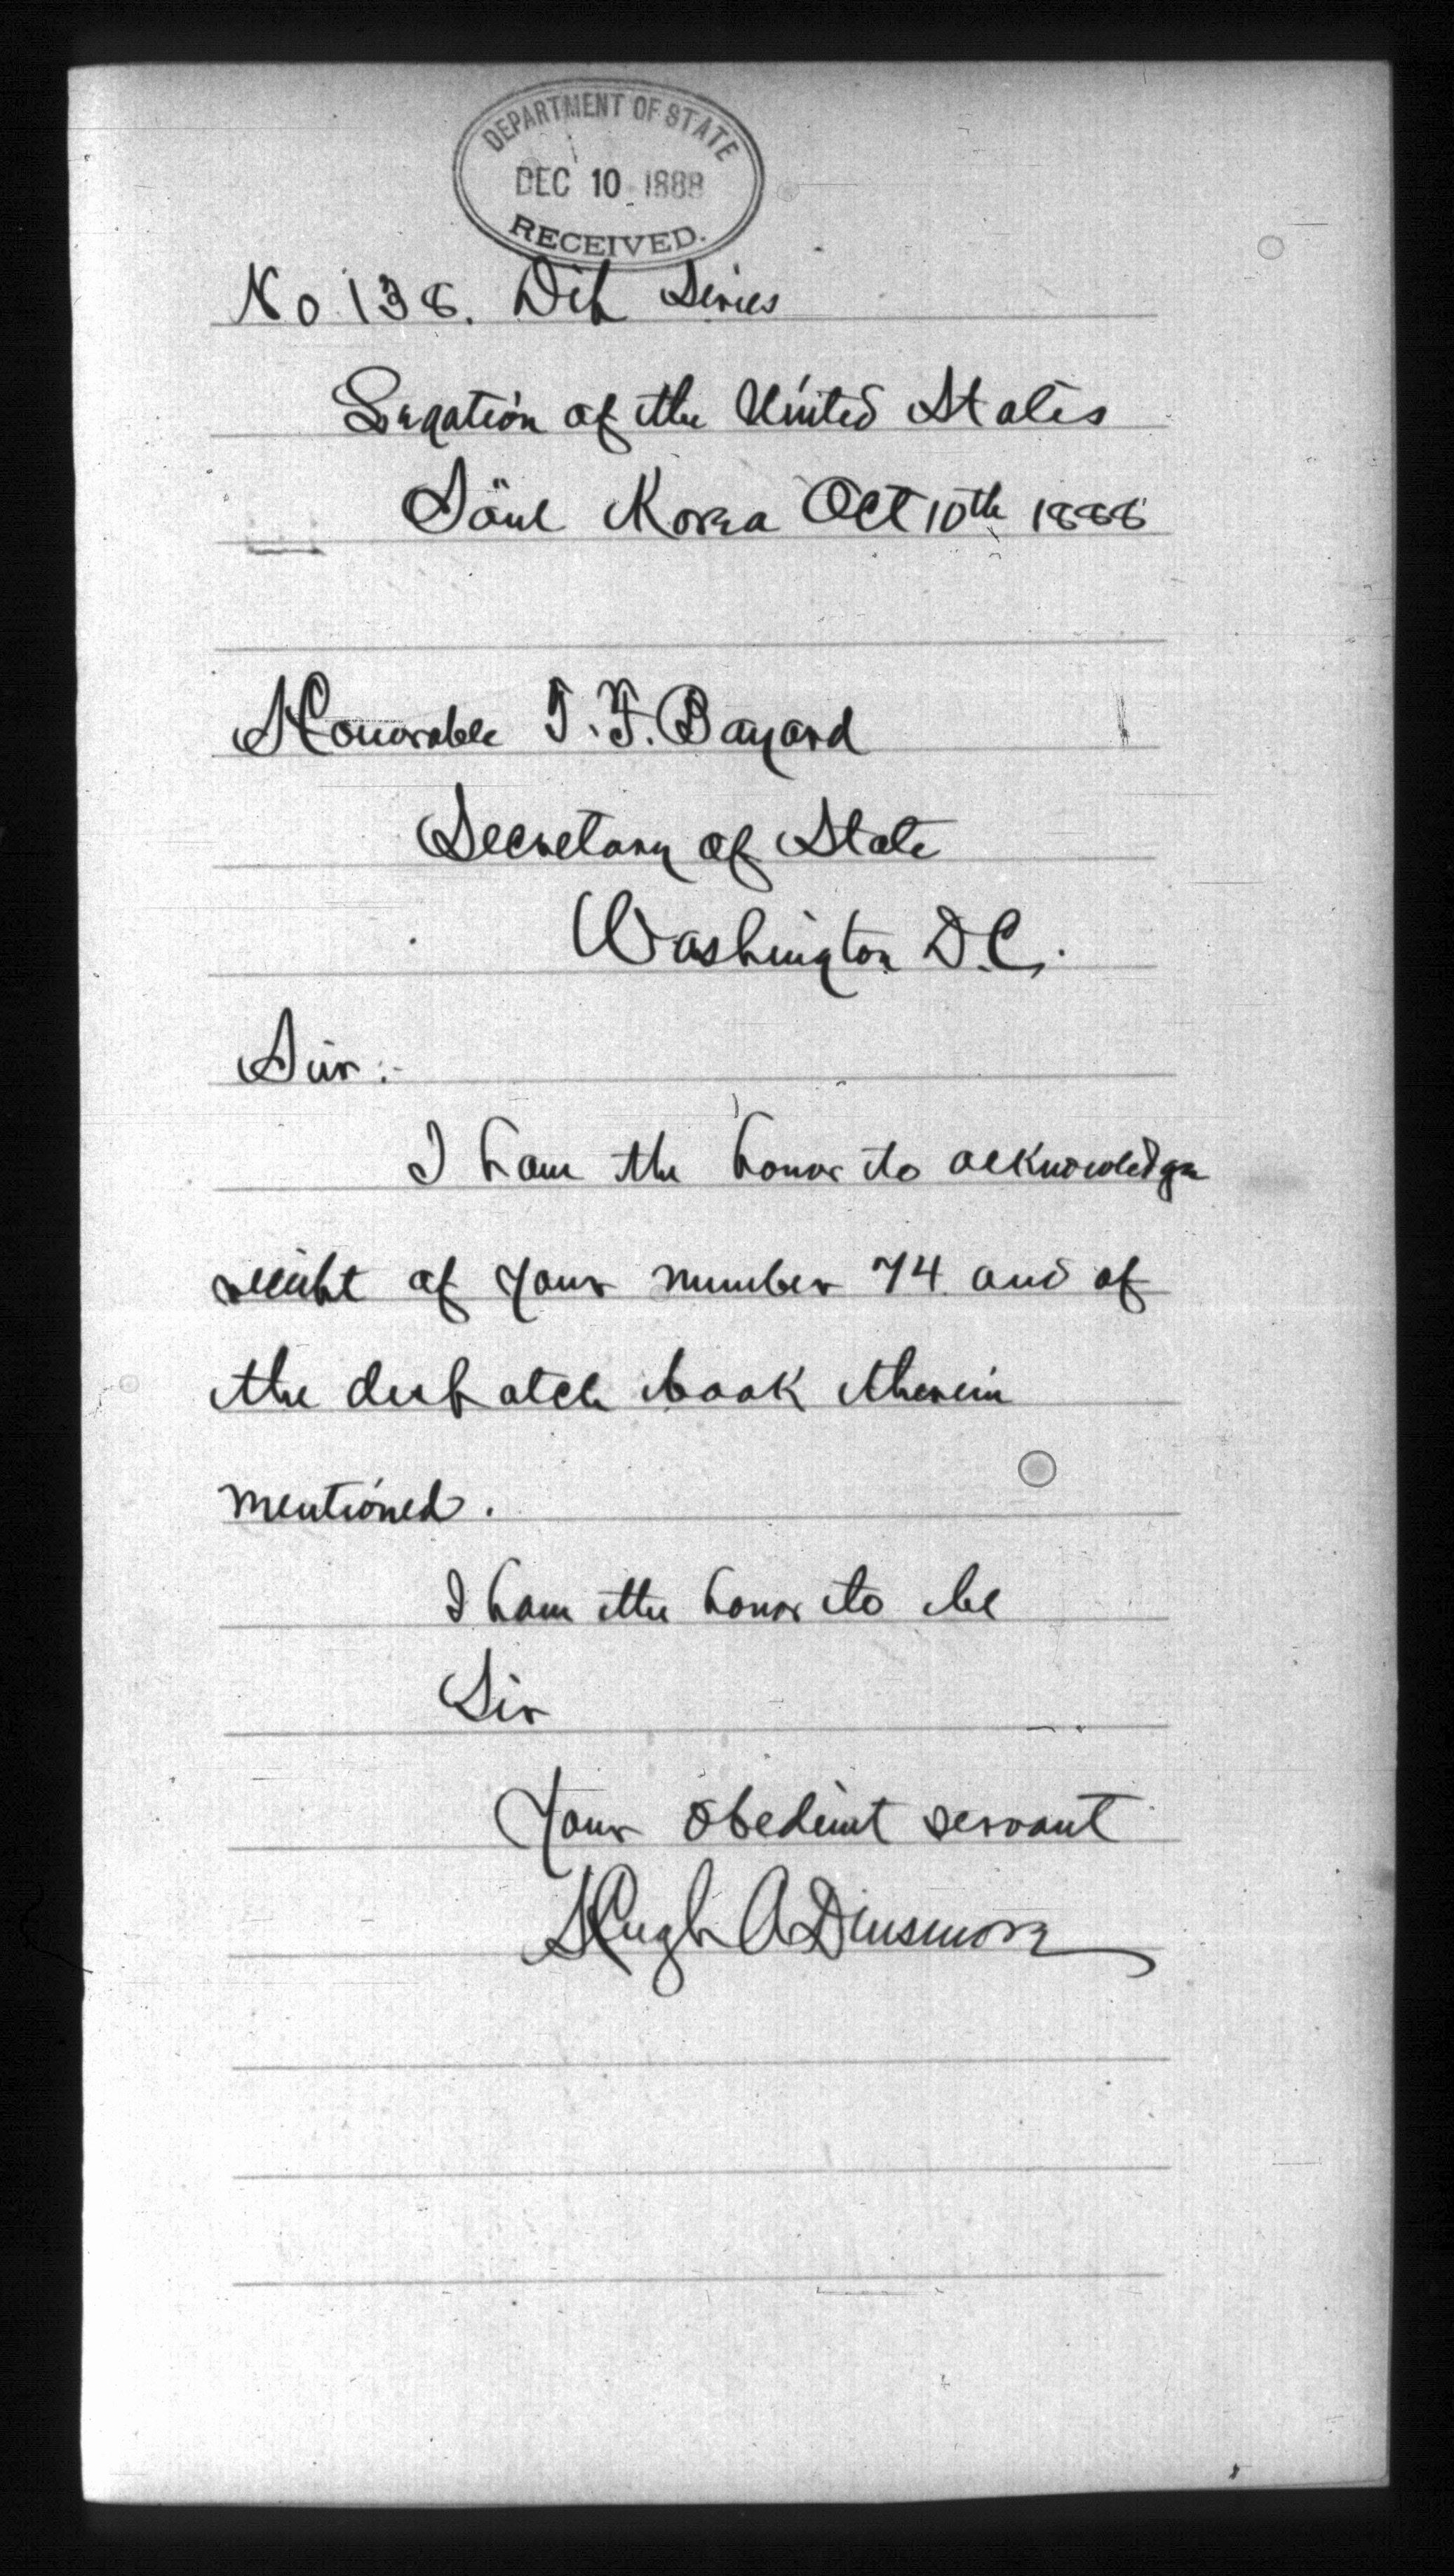 DEPARTMENT OF STATE
DEC 10 1888
RECEIVED.
No 138. Dip Series
Legation of the United States
Söul Korea Oct 10th 1888
Honorable T. F. Bayard
Secretary of State
Washington D.C.
Sir:-
I have the honor to acknowledge
receipt of your number 74 and of
the despatch book therein
mentioned.
I have the honor to be
Sir
Your obedient servant
Hugh A Dinsmore